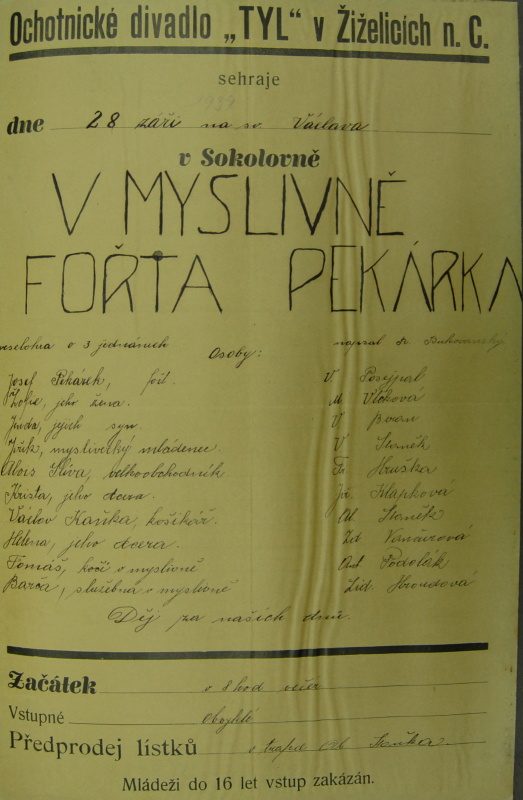 Ochotnické divadlo „TYL“ v Žiželicích n. C.
sehraje
1934
dne 28 září na sv. Václava
v Sokolovně
V MYSLIVNĚ
FOŘTA PEKÁRKA
veselohra o 3 jednáních Osoby: napsal Fr. Bukovanský
Josef Pekárek, fořt. V. Posejpal
Žofie, jeho žena. M Vlčková
Jenda, jejich syn. V. Beran
Jiřík, myslivecký mládenec V Staněk
Alois Slíva, velkoobchodník Fr. Hruška
Krista, jeho dcera. Klapková
Václav Kaňka, košíkář. Al Staněk
Helena, jeho dcera. Zd
Tomáš, kočí v myslivně Ant Podolák
Barča, služebná v myslivně Lid. Hroudová
Děj za našich dnů.
Začátek o 8 hod večer
Vstupné Obvyklé
Předprodej lístků v trafice
Mládeži do 16 let vstup zakázán.